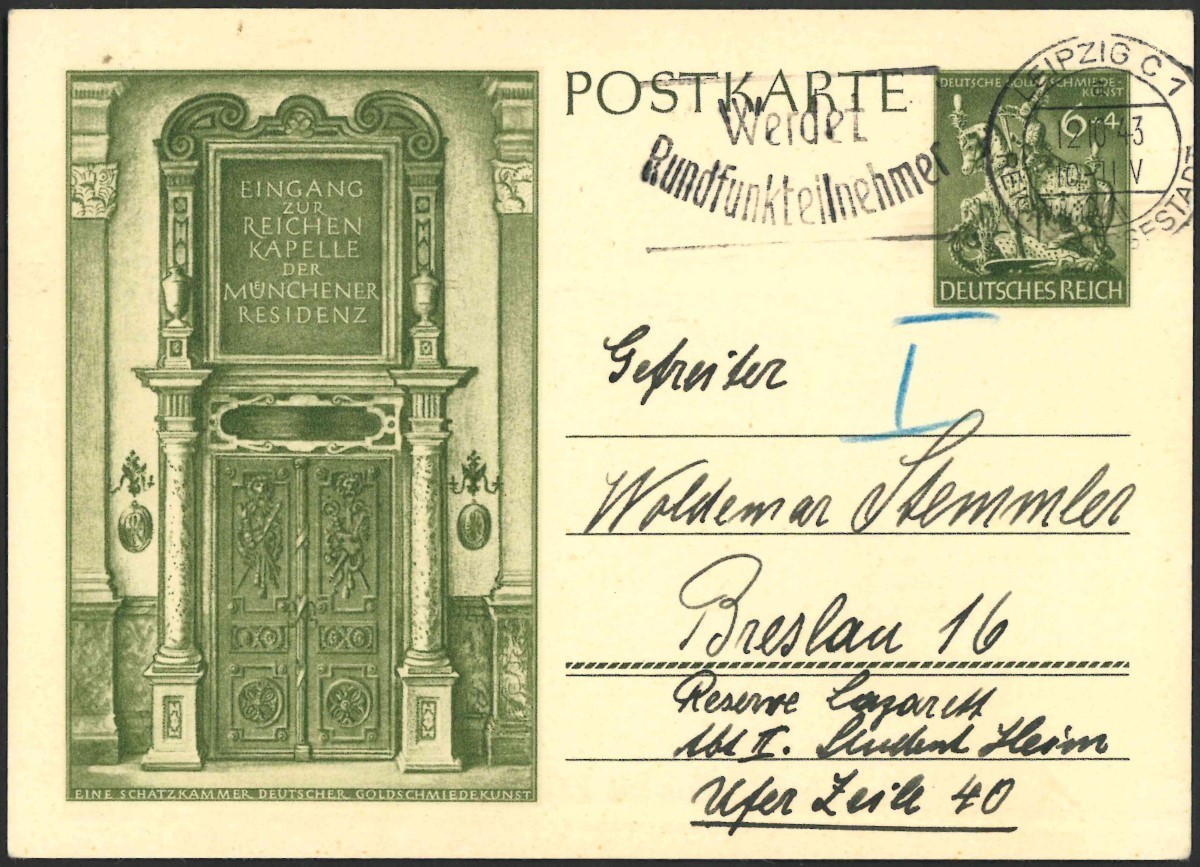 EINGANG
ZUR
REICHEN
KAPELLE
DER
MÜNCHENER
RESIDENZ
EINE SCHATZKAMMER DEUTSCHER GOLDSCHMIEDEKUNST
POSTKARTE
Werdet
Rundfunkteilnehmer
LEIPZIG C 1
12.10.43
DEUTSCHE GOLDSCHMIEDE-
KUNST
6+4
DEUTSCHES REICH
I
Gefreiter
Woldemar Stemmler
Breslau 16
Reserve Lazarett
Abt II. Student Heim
Ufer Zeile 40